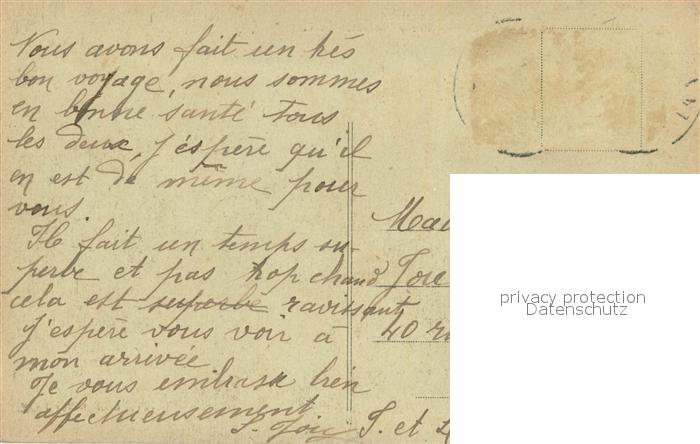 Nous avons fait un très
bon voyage, nous sommes
en bonne santé tous
les deux, j'éspère qu'il
en est de même pour
vous.
Il fait un temps su-
perbe et pas trop chaud
cela est superbe ravissant
j'espère vous voir à
mon arrivée
Je vous embrasse bien
affectueusement
S. et L
40 r
privacy protection
Datenschutz